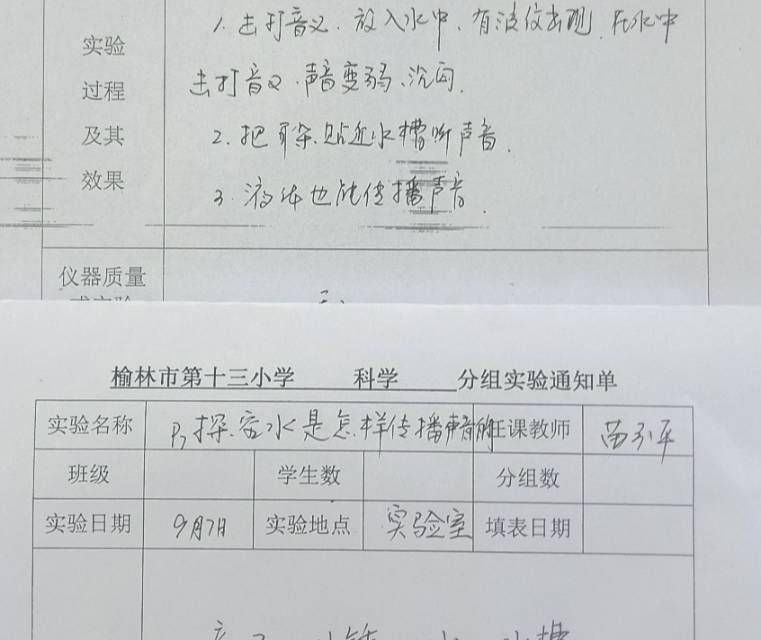 实验
过程
及其
效果
1. 击打音叉. 放入水中、有波纹出现. 在水中
击打音叉. 声音变弱、沉闷.
2. 把耳朵贴近水槽听声音.
3. 液体也能传播声音.
仪器质量
榆林市第十三小学 科学 分组实验通知单
实验名称 P3 探究水是怎样传播声音的 任课教师
班级 学生数 分组数
实验日期 9月7日 实验地点 实验室 填表日期